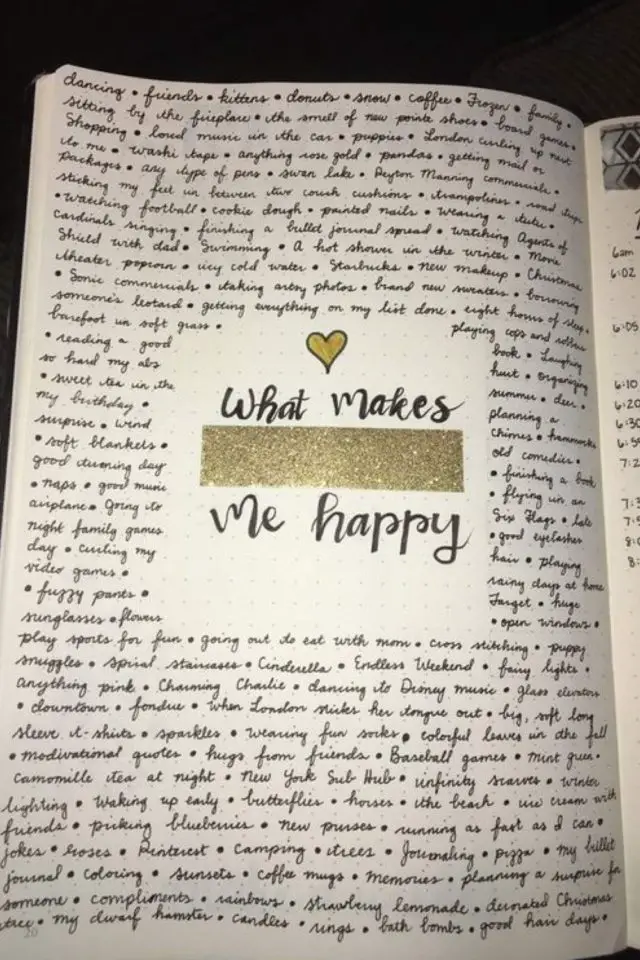 dancing • friends • kittens • donuts • snow • coffee • Frozen • family •
sitting by the fireplace • the smell of new pointe shoes • board games •
Shopping • loud music in the car • puppies • London curling up next
to me • washi tape • anything rose gold • pandas • getting mail or
packages • any type of pens • swan lake • Peyton Manning commercials •
sticking my feet in between two couch cushions • trampolines • road trips
• watching football • cookie dough • painted nails • wearing a tutu •
Cardinals singing • finishing a bullet journal spread • watching Agents of
Shield with dad • Swimming • A hot shower in the winter • Movie
theater popcorn • icy cold water • Starbucks • new makeup • Christmas
• Sonic commercials • taking artsy photos • brand new sweaters • borrowing
someone's leotard • getting everything on my list done • eight hours of sleep •
barefoot in soft grass • playing cops and robbers
• reading a good book • Laughing
so hard my abs hurt • organizing
• sweet tea in the summer • deer •
my birthday • planning a
surprise • wind chimes • hammocks
• soft blankets • old comedies •
good turning day • finishing a book
• naps • good music • flying in an
airplane • Going to Six Flags • late
night family games • good eyelashes
day • curling my hair • playing
video games • rainy days at home
• fuzzy pants • Target • huge
sunglasses • flowers • open windows •
What Makes
Me happy
play sports for fun • going out to eat with mom • cross stitching • puppy
snuggles • spiral staircases • Cinderella • Endless Weekend • fairy lights •
anything pink • Charming Charlie • dancing to Disney music • glass elevators
• downtown • fondue • when London sticks her tongue out • big, soft long
sleeve t-shirts • sparkles • wearing fun socks • colorful leaves in the fall
• modivational quotes • hugs from friends • Baseball games • mint green •
camomille tea at night • New York Sub Hub • infinity scarves • winter
lighting • Waking up early • butterflies • horses • the beach • ice cream with
friends • picking blueberries • new purses • running as fast as I can •
jokes • roses • Pinterest • camping • trees • Journaling • pizza • my bullet
journal • coloring • sunsets • coffee mugs • memories • planning a surprise for
someone • compliments • rainbows • strawberry lemonade • decorated Christmas
tree • my dwarf hamster • candles • rings • bath bombs • good hair days •
20
6am
6:02
6:05
6:10
6:20
6:30